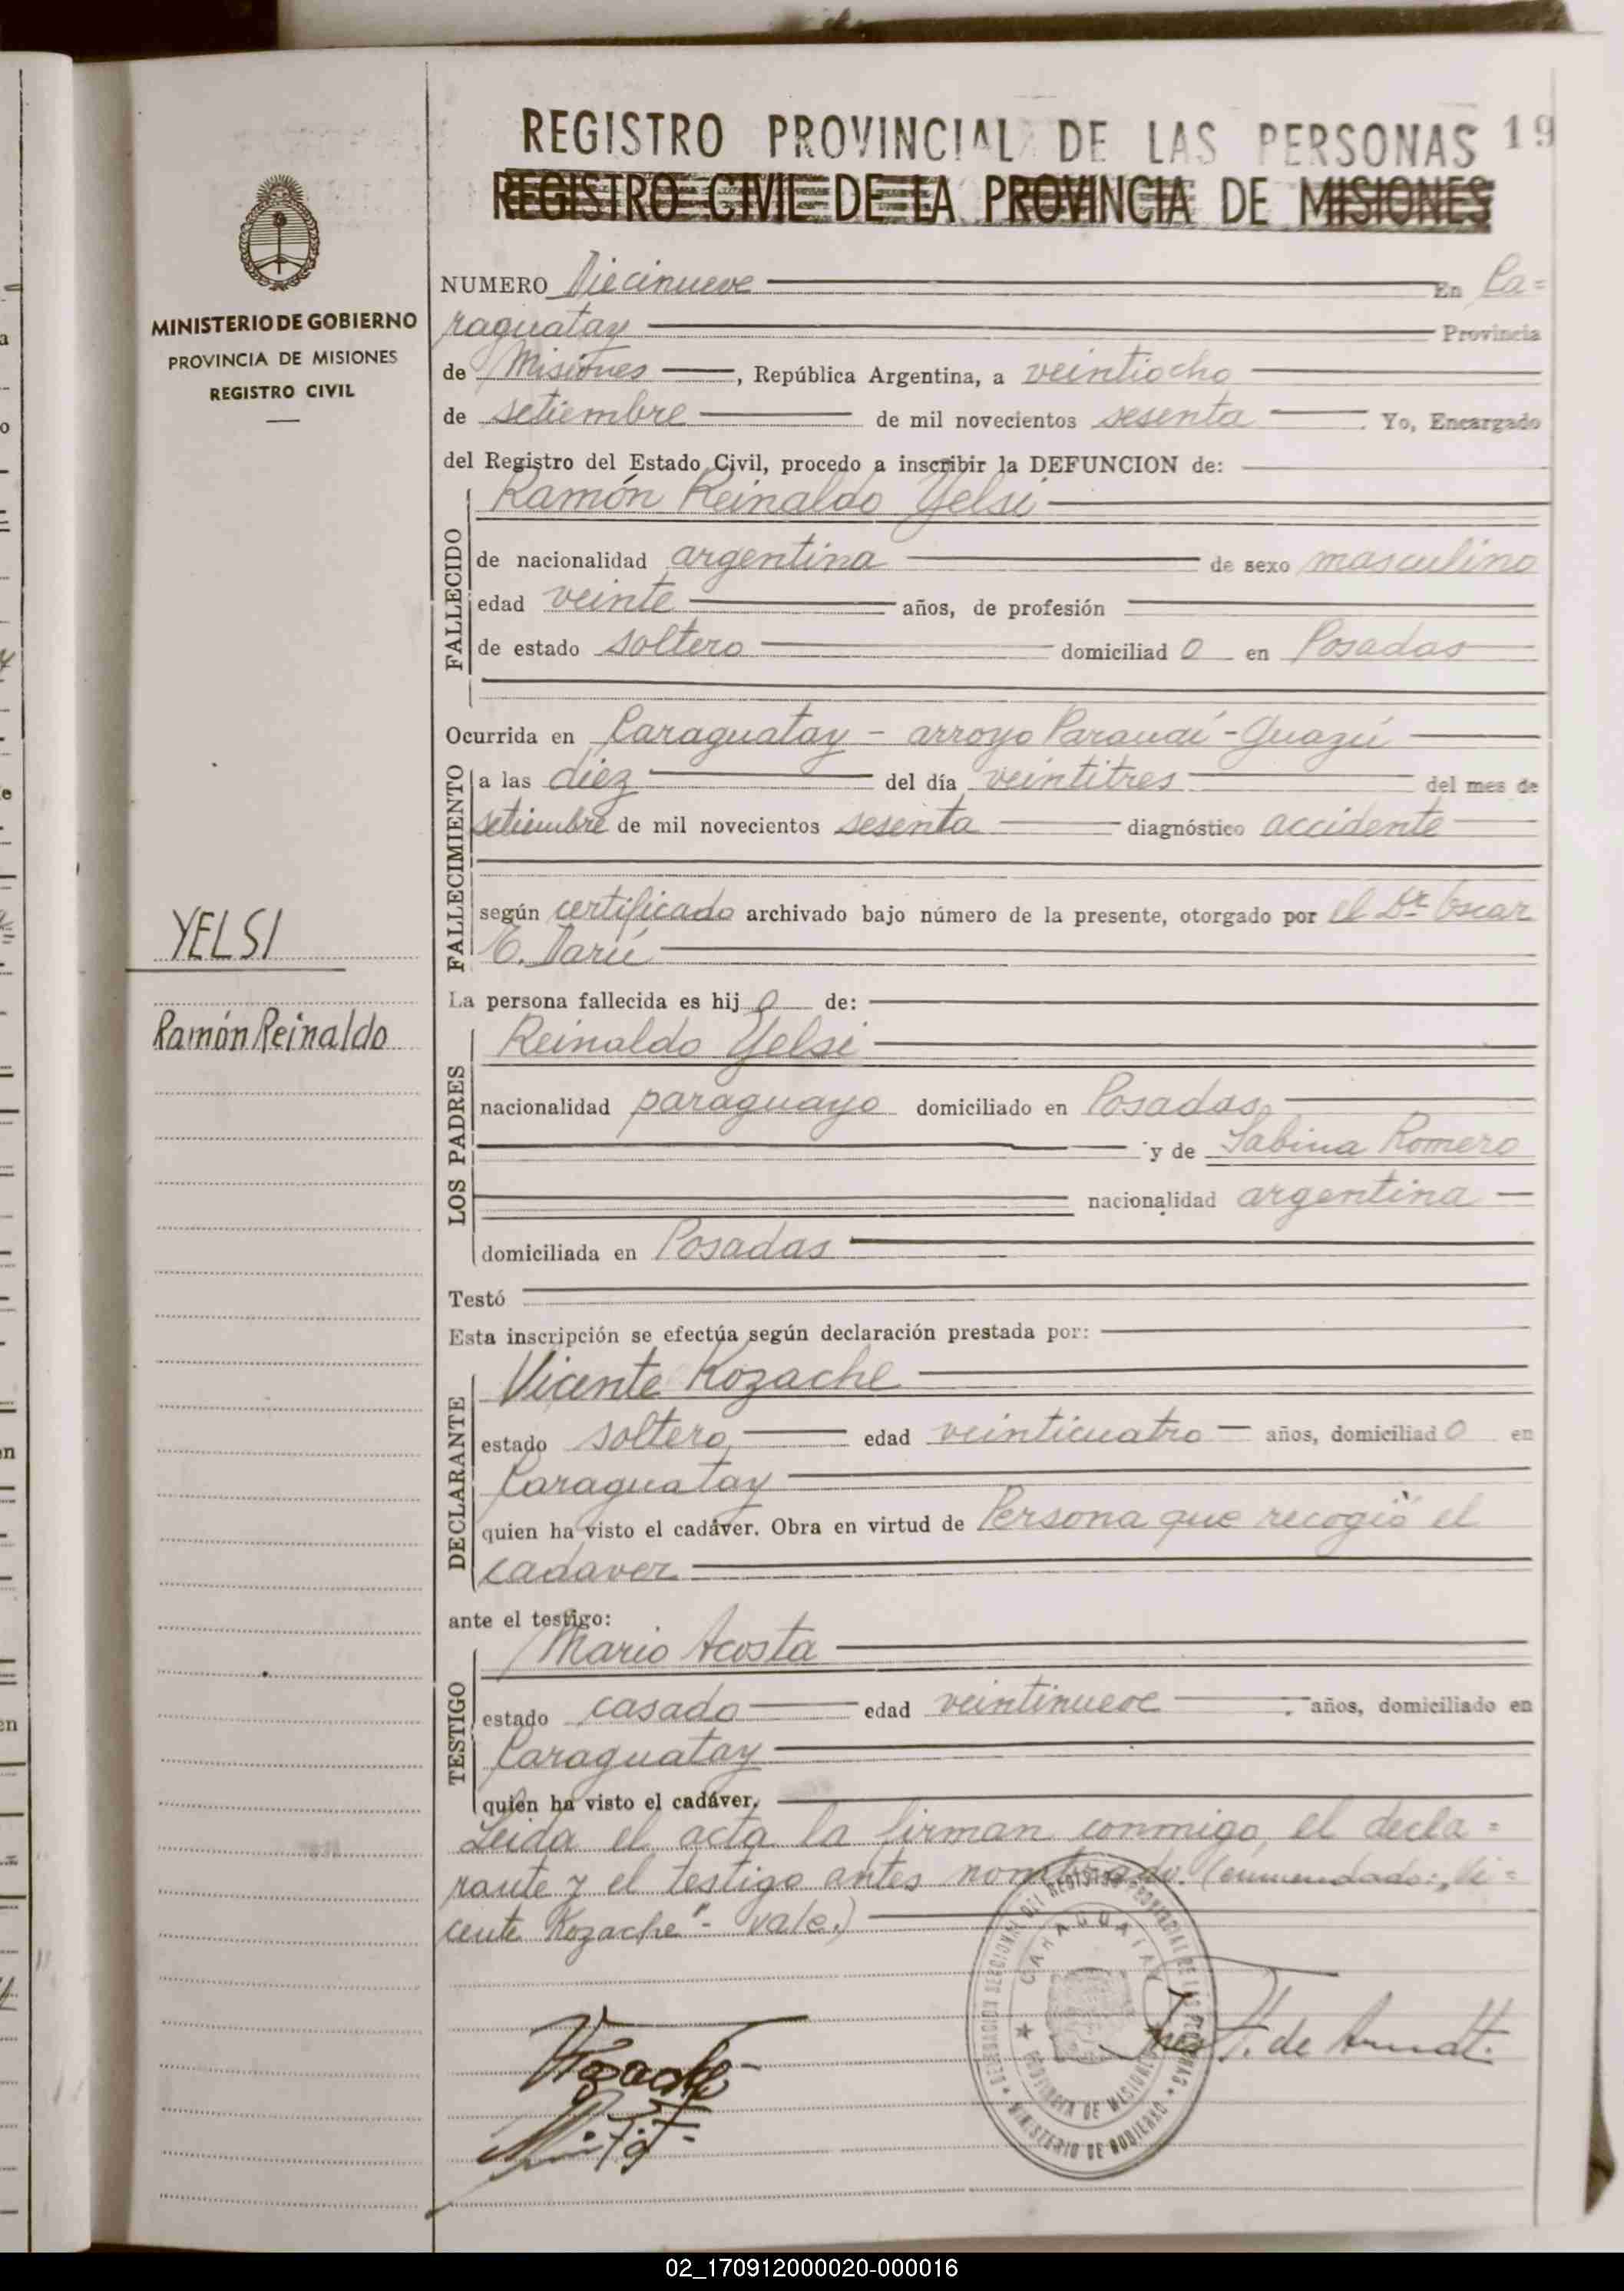 REGISTRO PROVINCIAL DE LAS PERSONAS 19
REGISTRO CIVIL DE LA PROVINCIA DE MISIONES
MINISTERIO DE GOBIERNO
PROVINCIA DE MISIONES
REGISTRO CIVIL
YELSI
Ramón Reinaldo
NUMERO Diecinueve En Ca=
raguatay Provincia
de Misiones, República Argentina, a veintiocho
de setiembre de mil novecientos sesenta. Yo, Encargado
del Registro del Estado Civil, procedo a inscribir la DEFUNCION de:
Ramón Reinaldo Yelsi
FALLECIDO
de nacionalidad argentina de sexo masculino
edad veinte años, de profesión
de estado soltero domiciliad o en Posadas
Ocurrida en Caraguatay - arroyo Paranaí-Guazú
FALLECIMIENTO
a las diez del día veintitres del mes de
setiembre de mil novecientos sesenta diagnóstico accidente
según certificado archivado bajo número de la presente, otorgado por el Dr Oscar
Darú
La persona fallecida es hij o de:
LOS PADRES
Reinaldo Yelsi
nacionalidad paraguayo domiciliado en Posadas,
y de Sabina Romero
nacionalidad argentina
domiciliada en Posadas
Testó
Esta inscripción se efectúa según declaración prestada por:
DECLARANTE
Vicente Kozache
estado soltero, edad veinticuatro años, domiciliad o en
Caraguatay
quien ha visto el cadáver. Obra en virtud de Persona que recogió el
cadaver
ante el testigo:
TESTIGO
Mario Acosta
estado casado edad veintinueve años, domiciliado en
Caraguatay
quien ha visto el cadáver.
Leida el acta la firman conmigo, el decla=
rante y el testigo antes nombrado. (enmendado: "Vi=
cente Kozache" - vale.)
DELEGACION SECCIONAL DEL REGISTRO PROVINCIAL DE LAS PERSONAS
CARAGUATAY
PROVINCIA DE MISIONES
MINISTERIO DE GOBIERNO
T. de Arndt.
02_170912000020-000016